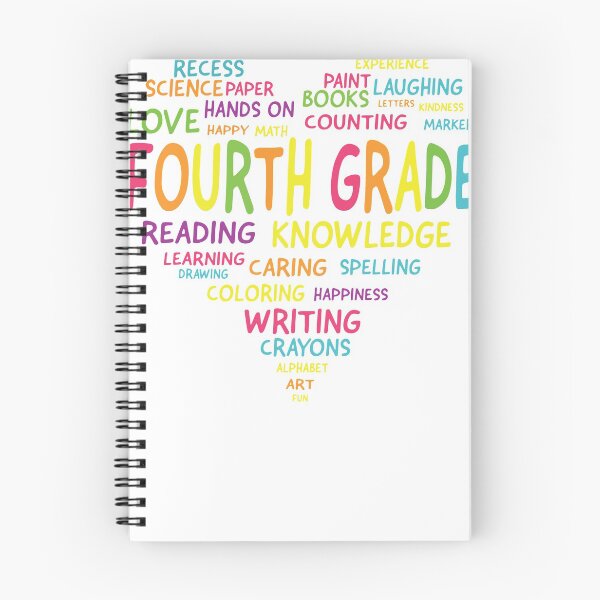 RECESS EXPERIENCE
SCIENCE PAPER PAINT LAUGHING
BOOKS LETTERS KINDNESS
LOVE HANDS ON COUNTING MARKE
HAPPY MATH
FOURTH GRADE
READING KNOWLEDGE
LEARNING CARING SPELLING
DRAWING
COLORING HAPPINESS
WRITING
CRAYONS
ALPHABET
ART
FUN